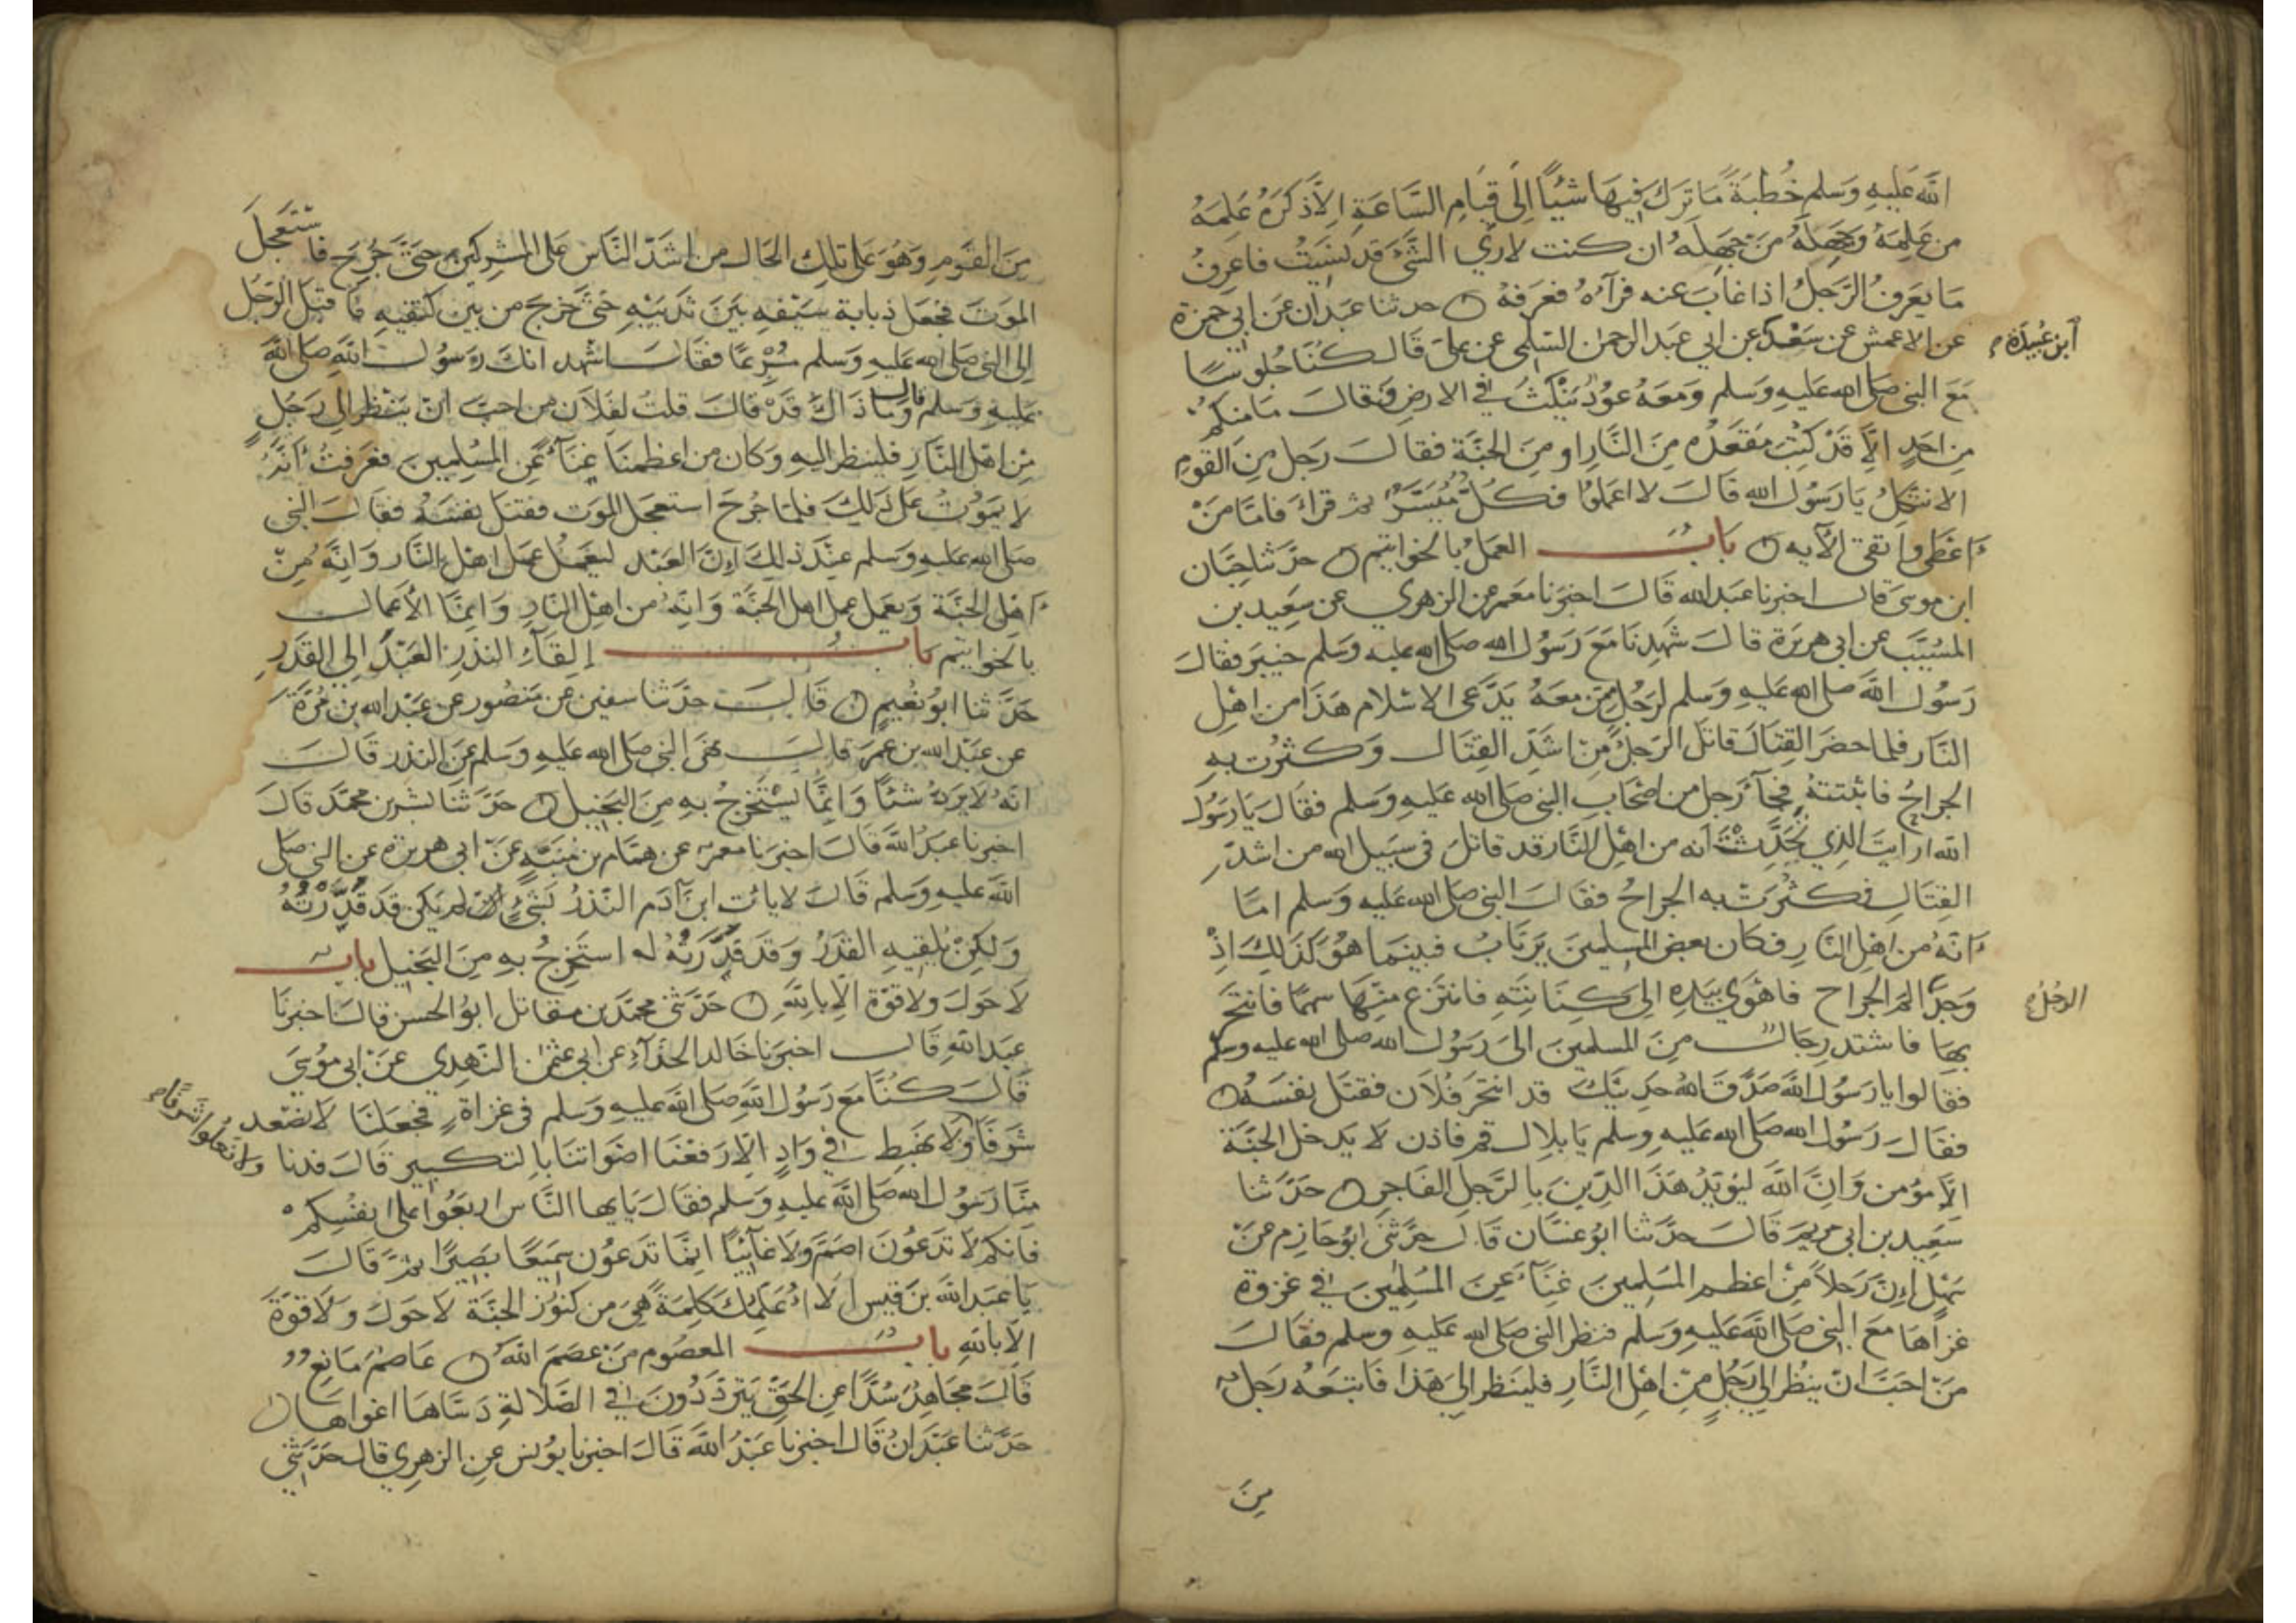 الله عليه وسلم خُطبةً ما ترك فيها شيئًا الى قيام الساعة الا ذكره علمه
من علمه وجهله من جهله ان كنت لارى الشئ قد نسيت فاعرف
ما يعرف الرجل اذا غاب عنه فرآه فعرفه ○ حدثنا عبدان عن ابي حمزة
عن الاعمش عن سعد عن ابي عبد الرحمن السلمى عن على قال كنا جلوسًا
ابن عبيدة
مع النبى صلى الله عليه وسلم ومعه عود ينكث في الارض فقال ما منكم
من احدٍ الا قد كتب مقعده من النار او من الجنة فقال رجل من القوم
الا نتكل يا رسول الله قال لا اعملوا فكل ميسر ثم قراء فاما من
اعطى واتقى الآيه ○ باب العمل بالخواتيم ○ حدثنا حبان
ابن موسى قال اخبرنا عبد الله قال اخبرنا معمر عن الزهري عن سعيد بن
المسيب عن ابى هريرة قال شهدنا مع رسول الله صلى الله عليه وسلم خيبر فقال
رسول الله صلى الله عليه وسلم لرجل ممن معه يدعى الاسلام هذا من اهل
النار فلما حضر القتال قاتل الرجل من اشد القتال وكثرت به
الجراح فاثبتته فجآء رجل من اصحاب النبى صلى الله عليه وسلم فقال يا رسول
الله ارايت الذي تحدثت انه من اهل النار قد قاتل فى سبيل الله من اشد
القتال فكثرت به الجراح فقال النبى صلى الله عليه وسلم اما
انه من اهل النار فكان بعض المسلمين يرتاب فبينما هو كذلك اذ
وجد الم الجراح فاهوى بيده الى كنانته فانتزع منها سهمًا فانتحر
الرجل
بها فاشتد رجال من المسلمين الى رسول الله صلى الله عليه وسلم
فقالوا يا رسول الله صدق الله حديثك قد انتحر فلان فقتل نفسه ○
فقال رسول الله صلى الله عليه وسلم يا بلال قم فاذن لا يدخل الجنة
الا مؤمن وان الله ليؤيد هذا الدين بالرجل الفاجر ○ حدثنا
سعيد بن ابى مريم قال حدثنا ابو غسان قال حدثنى ابو حازم عن
سهل ان رجلاً من اعظم المسلمين غنآء عن المسلمين في غزوة
غزاها مع النبى صلى الله عليه وسلم فنظر النبى صلى الله عليه وسلم فقال
من احب ان ينظر الى رجل من اهل النار فلينظر الى هذا فاتبعه رجل
من
من القوم وهو على تلك الحال من اشد الناس على المشركين حتى جرح فاستعجل
الموت فجعل ذبابة سيفه بين ثدييه حتى خرج من بين كتفيه فاقبل الرجل
الى النبى صلى الله عليه وسلم مسرعًا فقال اشهد انك رسول الله صلى الله
عليه وسلم قال وما ذاك قد قال قلت لفلان من احب ان ينظر الى رجل
من اهل النار فلينظر اليه وكان من اعظمنا غنآء عن المسلمين فعرفت انه
لا يموت على ذلك فلما جرح استعجل الموت فقتل نفسه فقال النبى
صلى الله عليه وسلم عند ذلك ان العبد ليعمل عمل اهل النار وانه من
اهل الجنة ويعمل عمل اهل الجنة وانه من اهل النار وانما الأعمال
بالخواتيم باب إلقآء النذر العبد الى القدر
حدثنا ابو نعيم ○ قال حدثنا سفين عن منصور عن عبد الله بن مرة
عن عبد الله بن عمر قال نهى النبى صلى الله عليه وسلم عن النذر قال
انه لا يرد شئًا وانما يستخرج به من البخيل ○ حدثنا بشر بن محمد قال
اخبرنا عبد الله قال اخبرنا معمر عن همام بن منبه عن ابى هريرة عن النبى صلى
الله عليه وسلم قال لا يات ابن آدم النذر بشئ لم يكن قد قدرته
ولكن يلقيه القدر وقد قدرته له استخرج به من البخيل باب
لا حول ولا قوة الا بالله ○ حدثنى محمد بن مقاتل ابو الحسن قال اخبرنا
عبد الله قال اخبرنا خالد الحذآء عن ابى عثمن النهدي عن ابى موسى
قال كنا مع رسول الله صلى الله عليه وسلم فى غزاة فجعلنا لا نصعد
شرفًا ولا نهبط في وادٍ الا رفعنا اصواتنا بالتكبير قال فدنا
ولا نعلوا شرفًا
منا رسول الله صلى الله عليه وسلم فقال يايها الناس اربعوا على انفسكم
فانكم لا تدعون اصم ولا غآئبًا انما تدعون سميعًا بصيرًا ثم قال
يا عبد الله بن قيس الا اعلمك كلمة هى من كنوز الجنة لا حول ولا قوة
الا بالله باب المعصوم من عصم الله ○ عاصم مانع
قال مجاهد سدًا عن الحق يترددون في الضلالة دساها اغواها ○
حدثنا عبدان قال اخبرنا عبد الله قال اخبرنا يونس عن الزهرى قال حدثنى